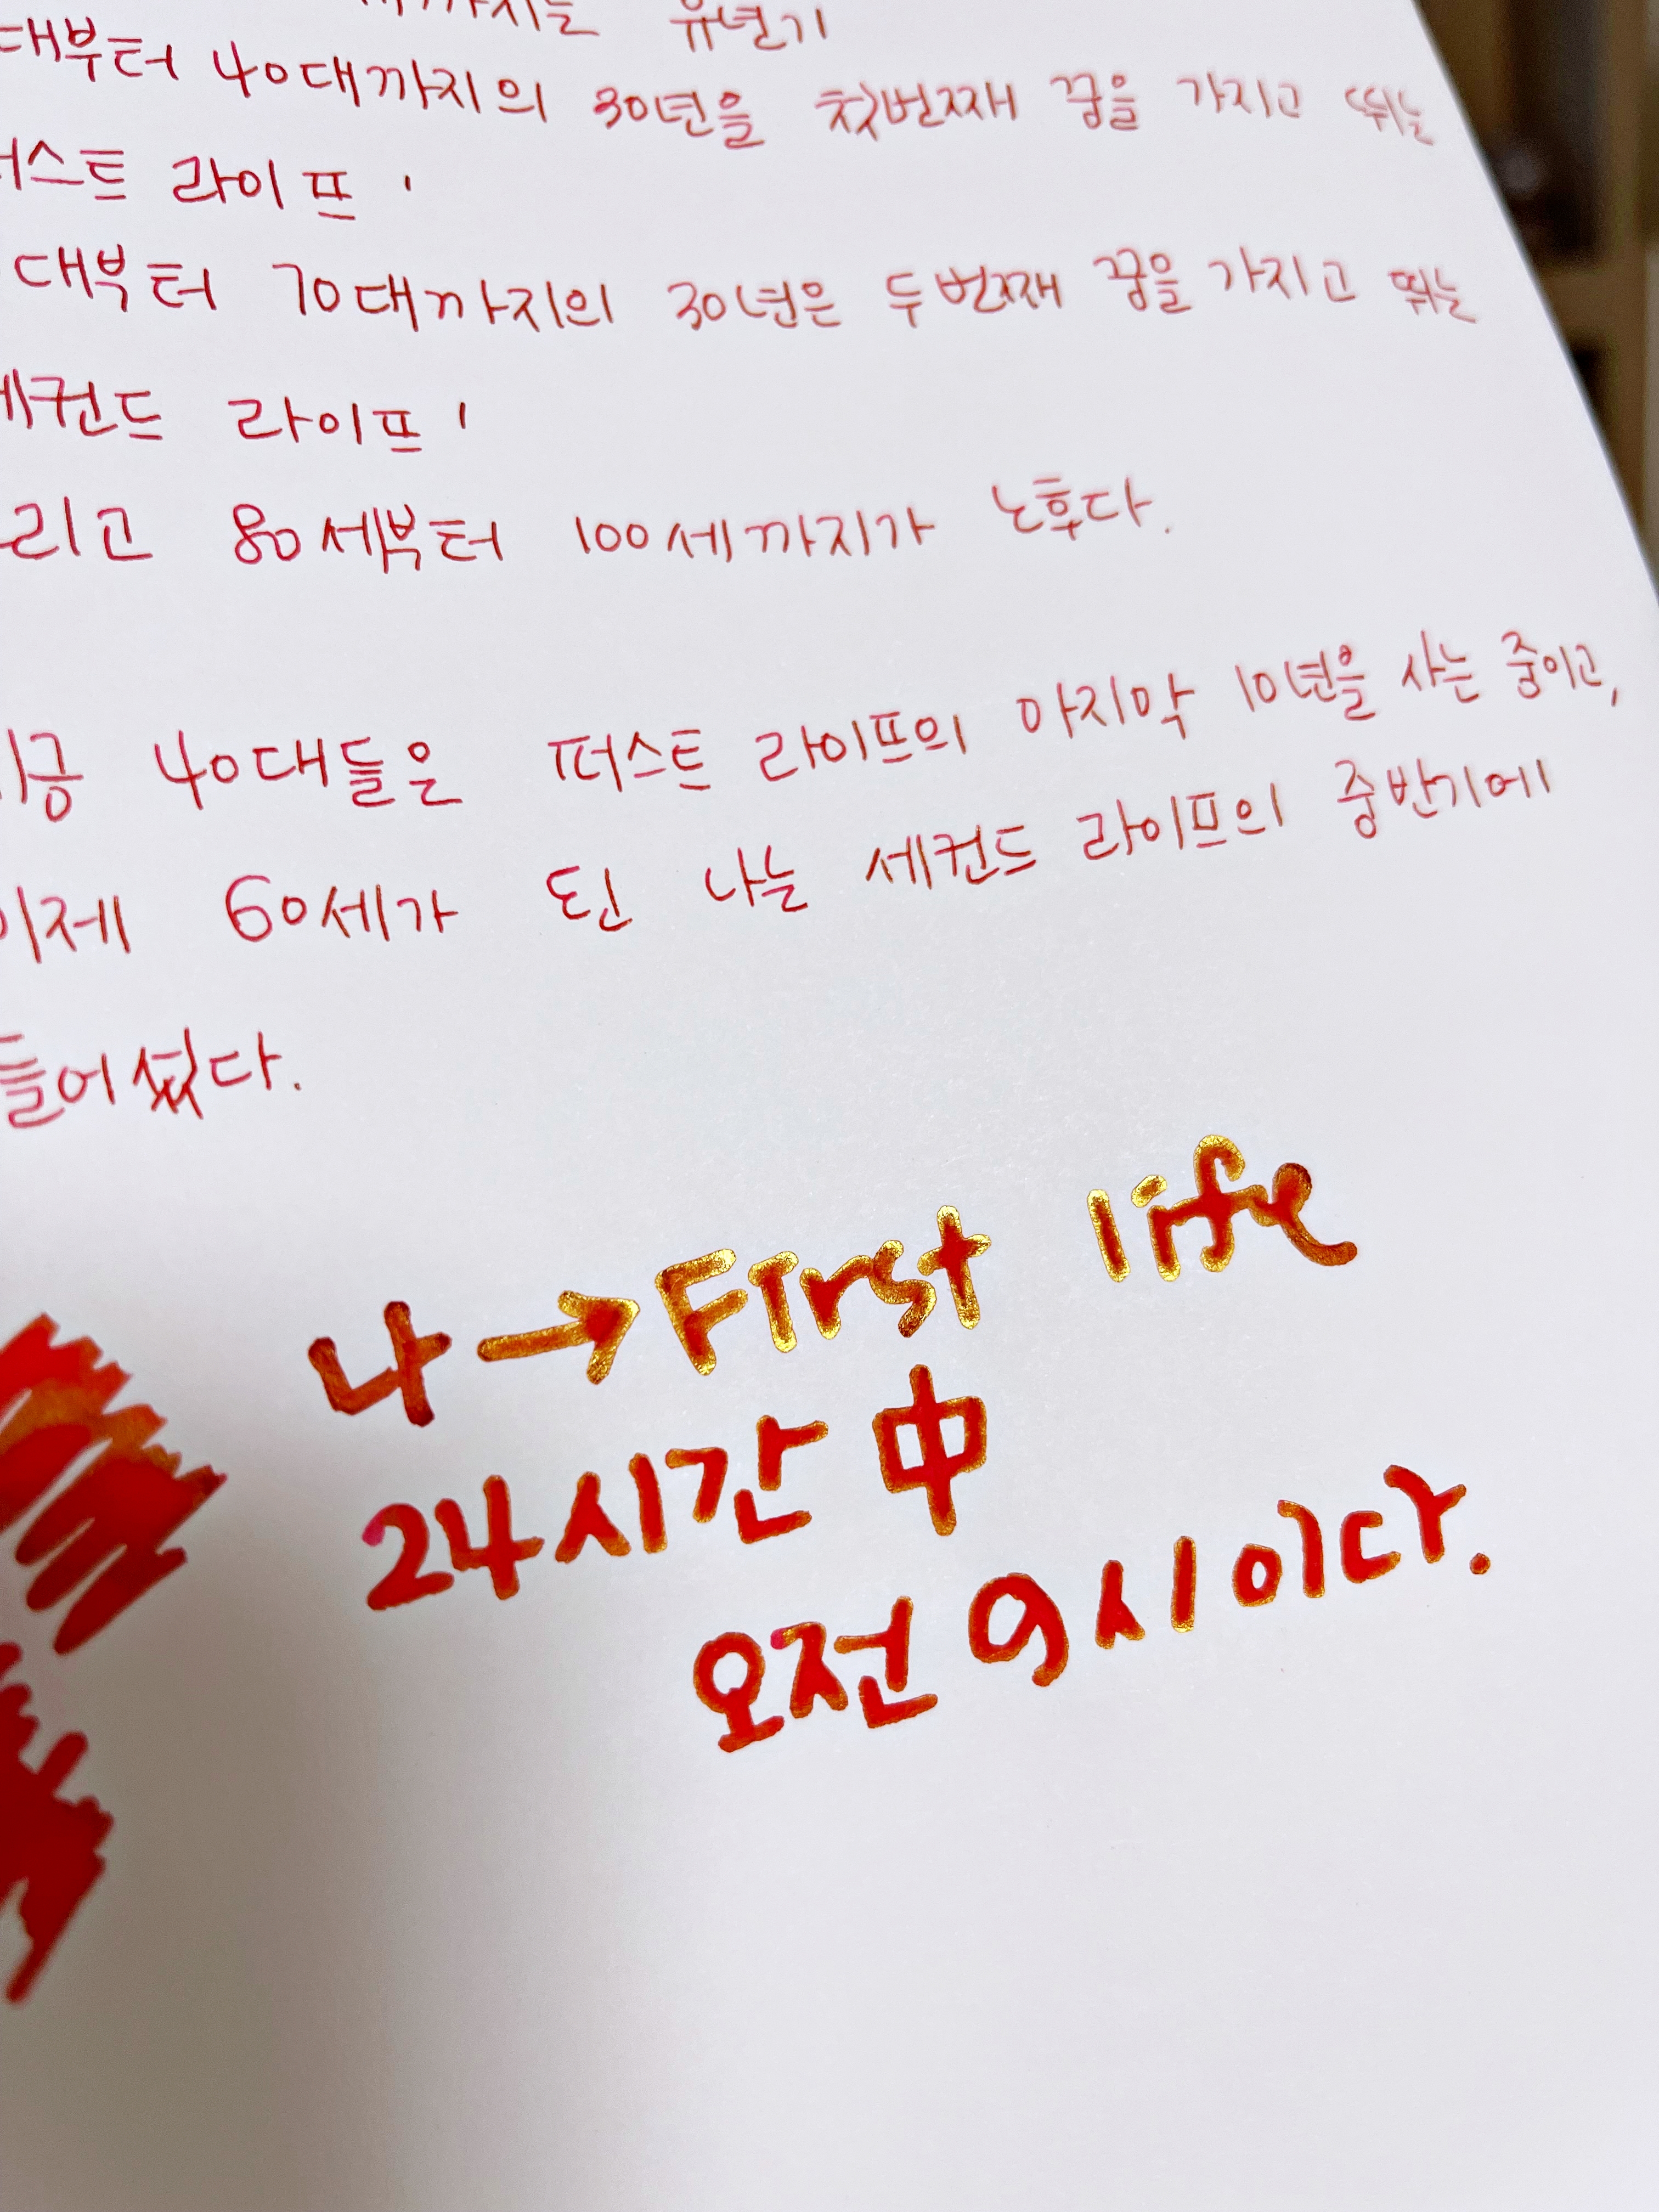 까지는 유년기
대부터 40대까지의 30년을 첫번째 꿈을 가지고 뛰는
퍼스트 라이프'
대부터 70대까지의 30년은 두번째 꿈을 가지고 뛰는
세컨드 라이프'
그리고 80세부터 100세까지가 노후다.
지금 40대들은 퍼스트 라이프의 마지막 10년을 사는 중이고,
이제 60세가 된 나는 세컨드 라이프의 중반기에
들어섰다.
나→First life
24시간 中
오전 9시이다.